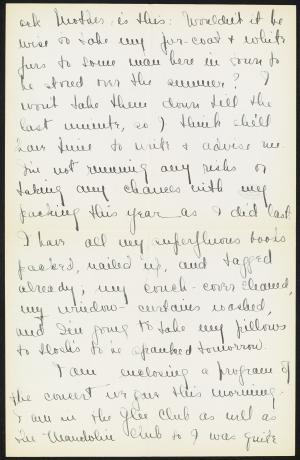 ask Mother, is this: Wouldn't it be
wise to take my fur-coat & white
furs to some man here in town to
be stored over the summer? I
won't take them down till the
last minute, so I think she'll
have time to write & advise me.
I'm not running any risks or
taking any chances with my
packing this year as I did last.
I have all my superfluous books
packed, nailed up, and tagged
already; my couch-cover cleaned,
my window-curtains washed,
and I'm going to take my pillows
to be spanked tomorrow.
I am enclosing a program of
the concert we gave this morning.
I am in the Glee Club as well as
the Mandolin Club so I was quite